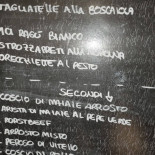 TAGLIATELLE ALLA BOSCAIOLA
RAGÙ BIANCO
STROZZAPRETI ALLA
ORECCHIETTE AL PESTO
SECONDI ↓
COSCIO DI MAIALE ARROSTO
ARISTA DI MAIALE AL PEPE VERDE
- ROASTBEEF
- ARROSTO MISTO
- PEROSO DI VITELLO